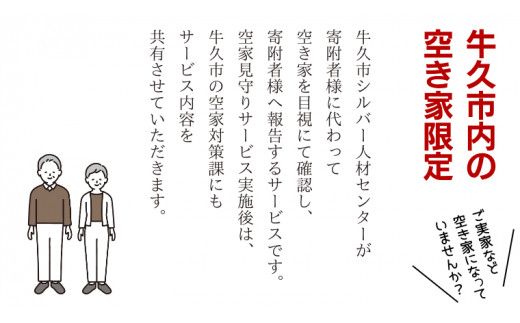 牛久市内の
空き家限定
ご実家など
空き家になって
いませんか？
牛久市シルバー人材センターが
寄附者様に代わって
空き家を目視にて確認し、
寄附者様へ報告するサービスです。
空家見守りサービス実施後は、
牛久市の空家対策課にも
サービス内容を
共有させていただきます。